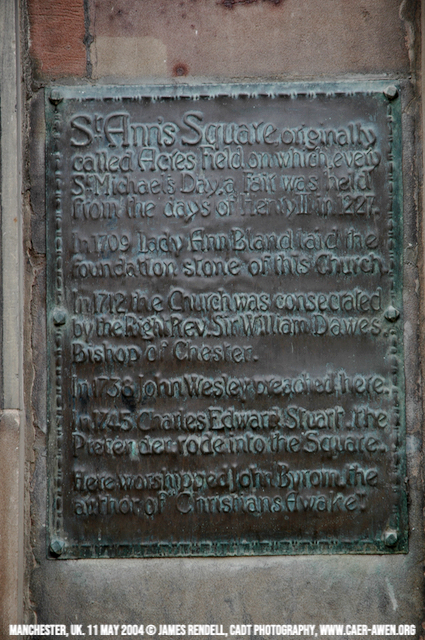 St Ann's Square, originally
called Acres Field, on which, every
St Michael's Day, a fair was held
from the days of Henry III in 1227.
In 1709 Lady Ann Bland laid the
foundation stone of this Church.
In 1712 the Church was consecrated
by the Right Rev. Sir William Dawes.
Bishop of Chester.
In 1738 John Wesley preached here.
In 1745 Charles Edward Stuart, the
Pretender, rode into the Square.
Here worshipped John Byrom, the
author of "Christians Awake".
MANCHESTER, UK. 11 MAY 2004 © JAMES RENDELL, CADT PHOTOGRAPHY, WWW.CAER-AWEN.ORG